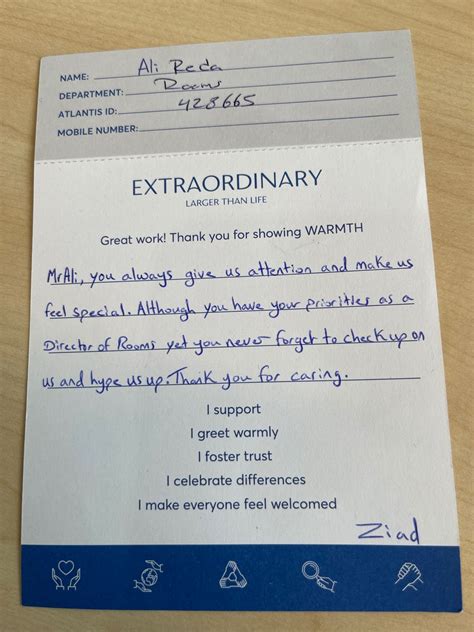 NAME: Ali Reda
DEPARTMENT: Rooms
ATLANTIS ID: 428665
MOBILE NUMBER:
EXTRAORDINARY
LARGER THAN LIFE
Great work! Thank you for showing WARMTH
Mr Ali, you always give us attention and make us
feel special. Although you have your priorities as a
Director of Rooms yet you never forget to check up on
us and hype us up. Thank you for caring.
I support
I greet warmly
I foster trust
I celebrate differences
I make everyone feel welcomed
Ziad